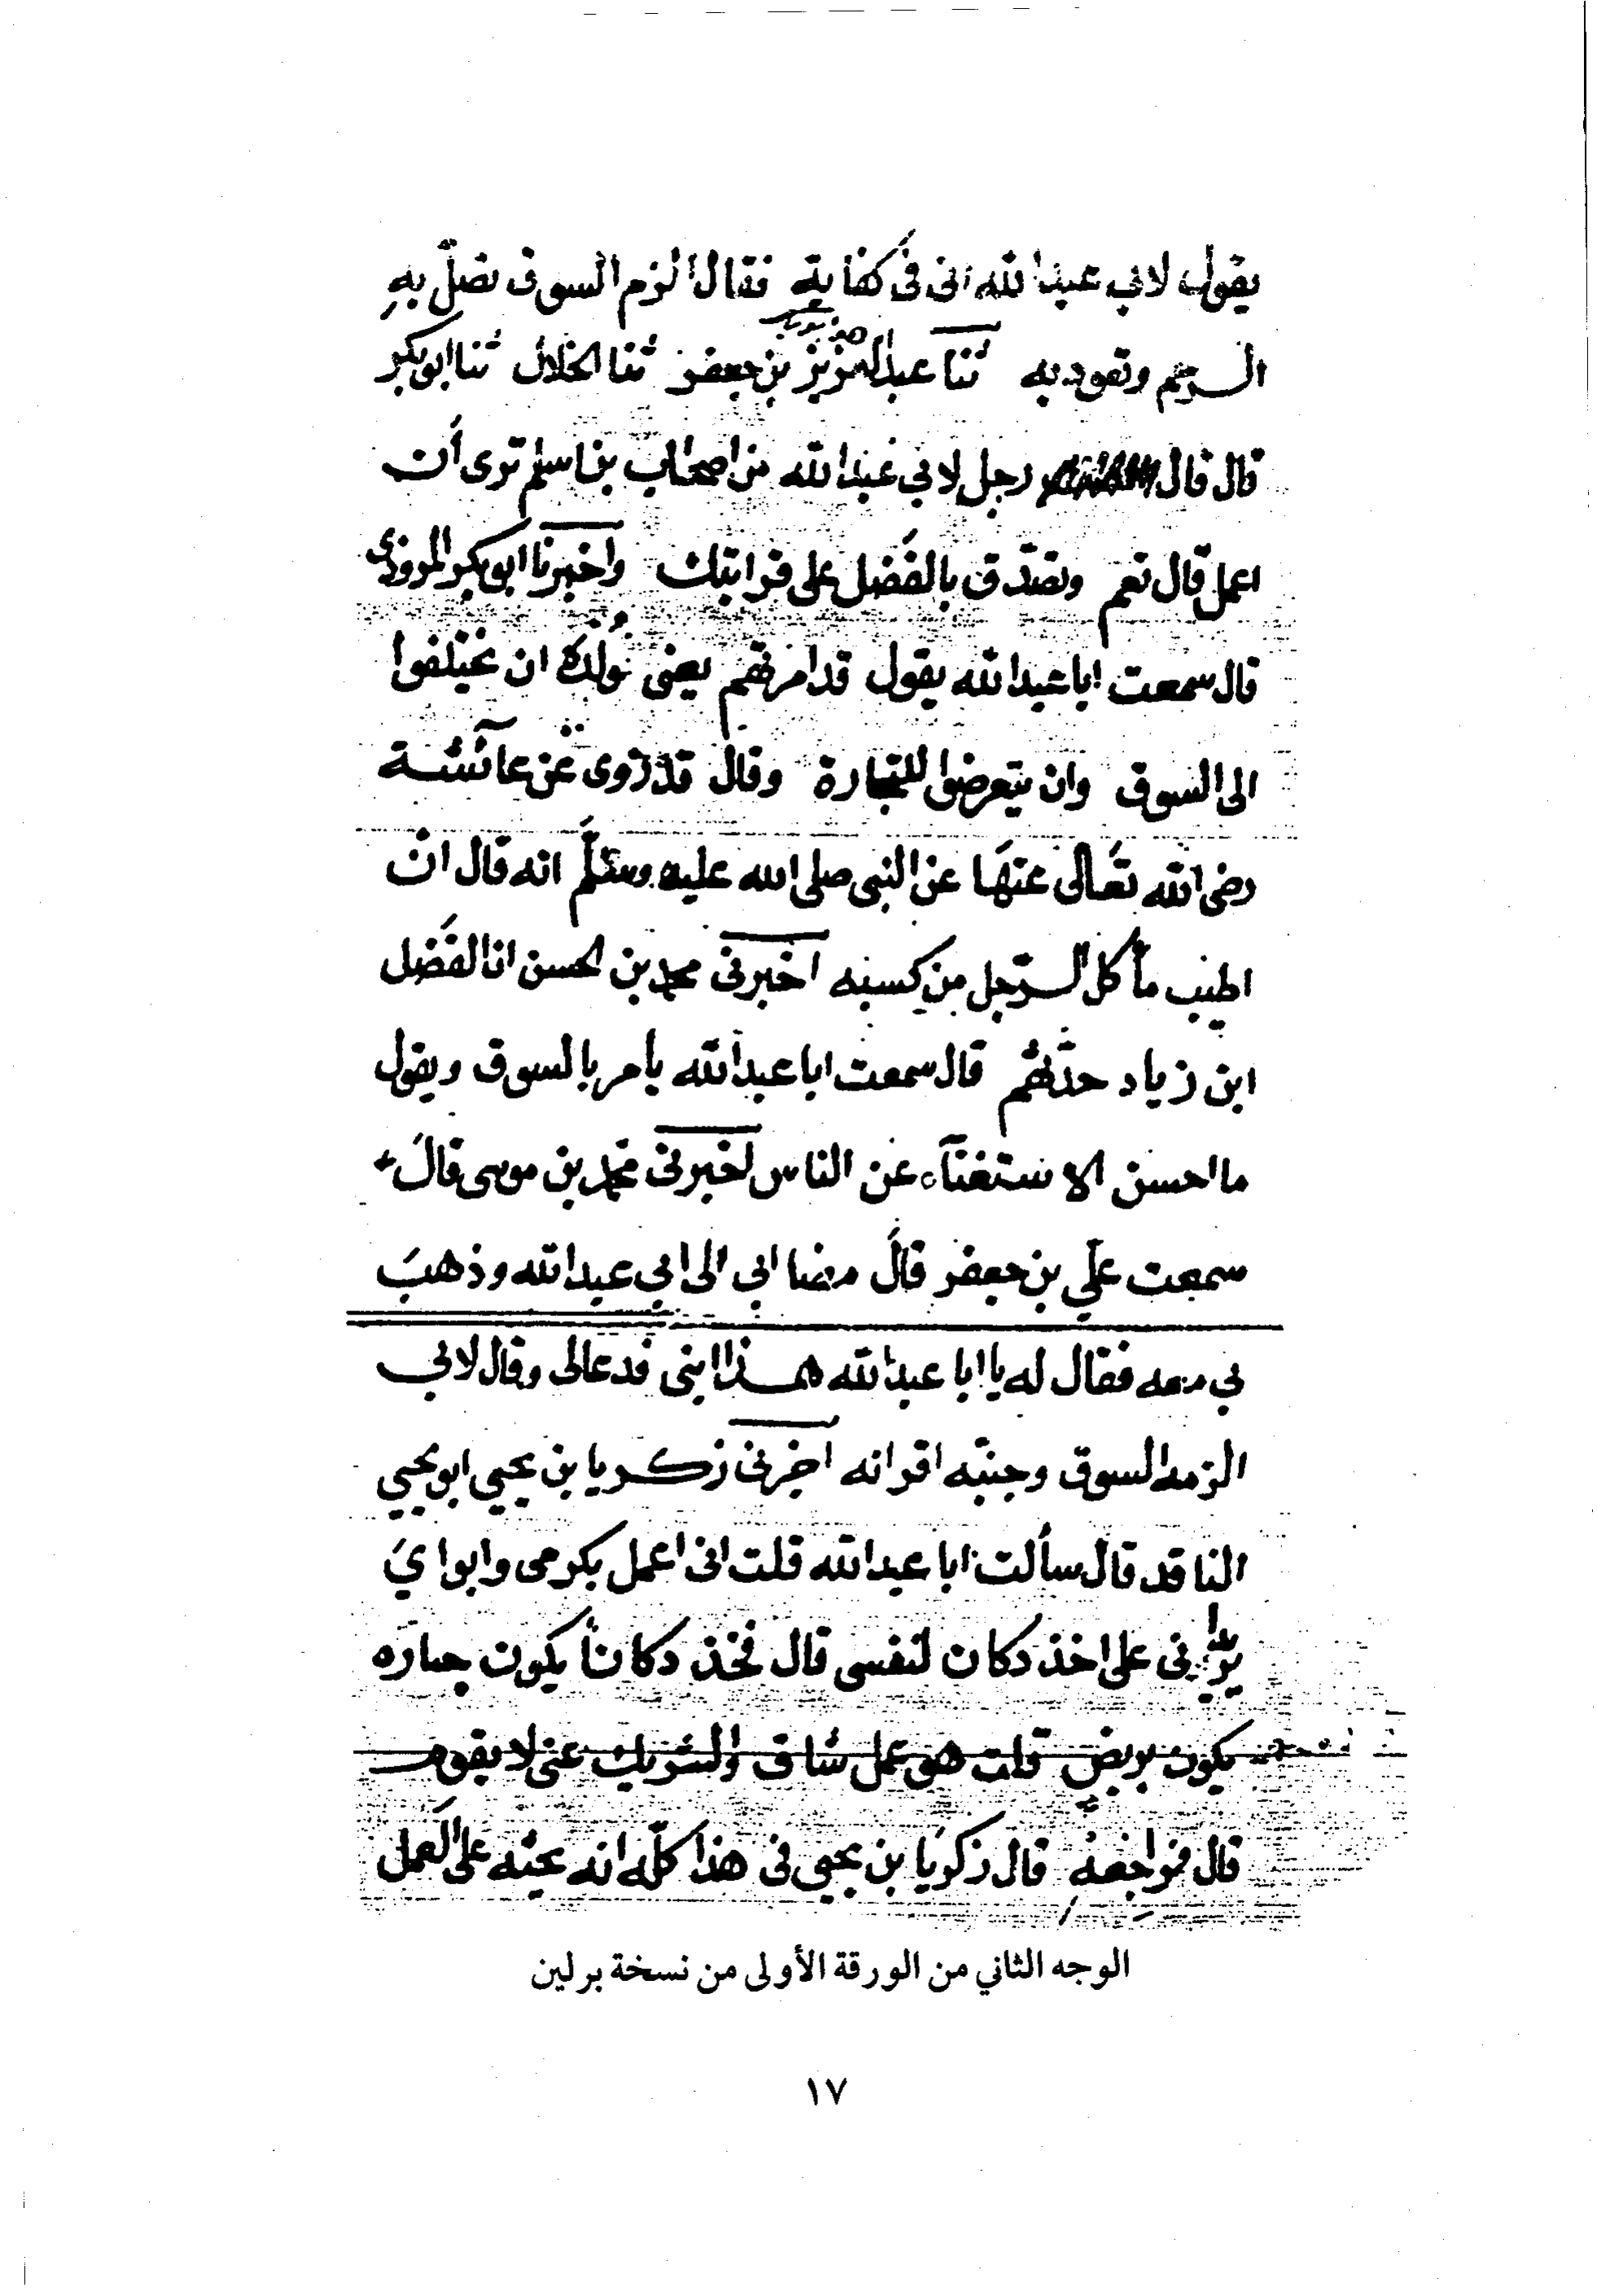 يقول لابي عبد الله اني في كفاية فقال الزم السوق تصل به
الرحم وتعود به ثنا عبد العزيز بن جعفر ثنا الخلال ثنا ابو بكر
قال قال رجل لابي عبد الله من اصحاب بن اسلم ترى أن
اعمل قال نعم وتصدق بالفضل على قرابتك واخبرنا ابو بكر المروذى
قال سمعت ابا عبد الله يقول قد امرتهم يعنى لولده ان يختلفوا
الى السوق وان يتعرضوا للتجارة وقال قد روى عن عائشة
رضى الله تعالى عنها عن النبى صلى الله عليه وسلم انه قال ان
اطيب ما أكل الرّجل من كسبه اخبرنى محمد بن الحسن انا الفضل
ابن زياد حدثهم قال سمعت ابا عبد الله يأمر بالسوق ويقول
ما احسن الاستغنآء عن الناس اخبرنى محمد بن موسى قال
سمعت علي بن جعفر قال مضا ابي الى ابي عبد الله وذهب
بي معه فقال له يا ابا عبد الله هذا ابنى فدعا لى وقال لابي
الزمه السوق وجنبه اقرانه اخبرنى زكريا بن يحيي ابو يحيي
الناقد قال سألت ابا عبد الله قلت انى اعمل بكرمى وابواي
نى على اخذ دكان لنفسى قال فخذ دكاناً يكون جباره
يكون بربض قلت هو عمل شاق والشريك عنى لا يقوم
قال فواضعه قال زكريا بن يحيى فى هذا كلّه انه يحثه على العمل
الوجه الثاني من الورقة الأولى من نسخة برلين
١٧